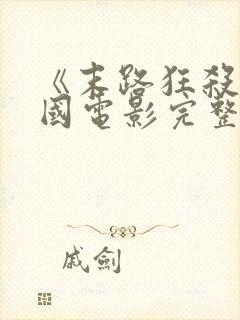 《末路狂殺
國電影完整
戚劍